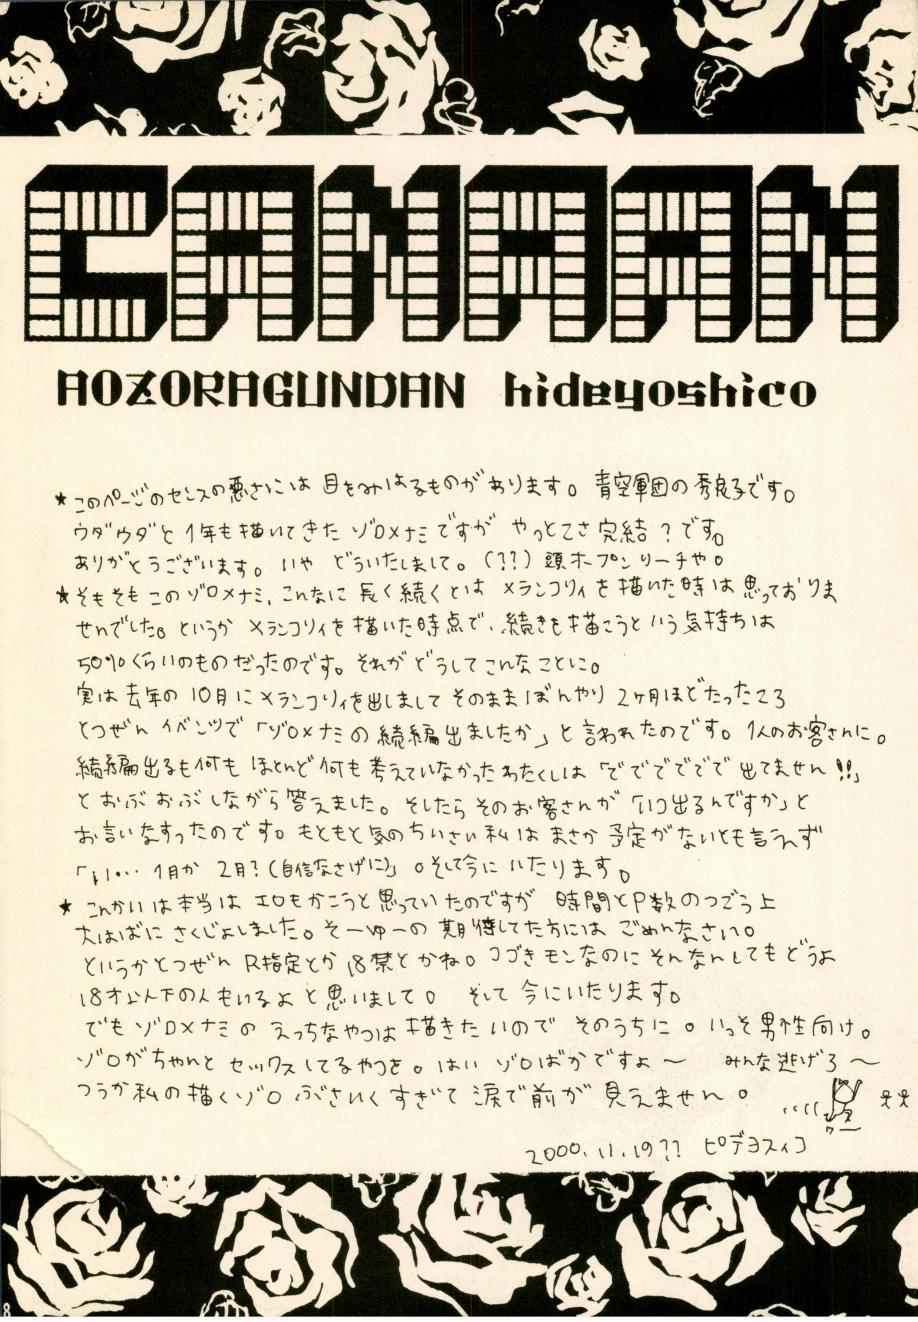 CANAAN
AOZORAGUNDAN hideyoshico
★このページのセンスの悪さには 目をみはるものがあります。 青空軍団の秀良子です。
ウダウダと 1年も描いてきた ゾロ×ナミですが やっとこさ完結?です。
ありがとうございます。いや どういたしまして。(??) 頭ホープンリーチや。
★そもそもこのゾロ×ナミ、こんなに 長く続くとは メランコリィを描いた時は思っておりま
せんでした。というか メランコリィを描いた時点で、続きを描こうという気持ちは
50%くらいのものだったのです。それが どうしてこんなことに。
実は去年の10月にメランコリィを出しまして そのままぼんやり 2ヶ月ほどたったころ
とつぜん イベンツで「ゾロ×ナミの続編出ましたか」と言われたのです。1人のお客さんに。
続編出るも何も ほとんど何も考えていなかったわたくしは「でででででで 出てません!!」
とおぶおぶしながら答えました。そしたらそのお客さんが「いつ出るんですか」と
お言いなすったのです。もともと気のちいさい私は まさか 予定がないとも言えず
「い… 1月か 2月?(自信なさげに)」。そして今にいたります。
★ こんかいは本当は エロもかこうと思っていたのですが 時間とP数のつごう上
大はばに さくじょしました。そーゆーの 期待してた方には ごめんなさい。
というかとつぜん R指定とか 18禁とかね。コゴきモンなのに そんなんしてもどうよ
18才以下の人もいるよと思いまして。 そして 今にいたります。
でも ゾロ×ナミの えっちなやつは 描きたいので そのうちに。いっそ男性向け。
ゾロがちゃんと セックスしてるやつを。はい ゾロばかですよ〜 みんな逃げろ〜
つうか私の描くゾロ ぶさいくすぎて 涙で前が 見えません。
2000.11.19?? ピデヨスィコ
8